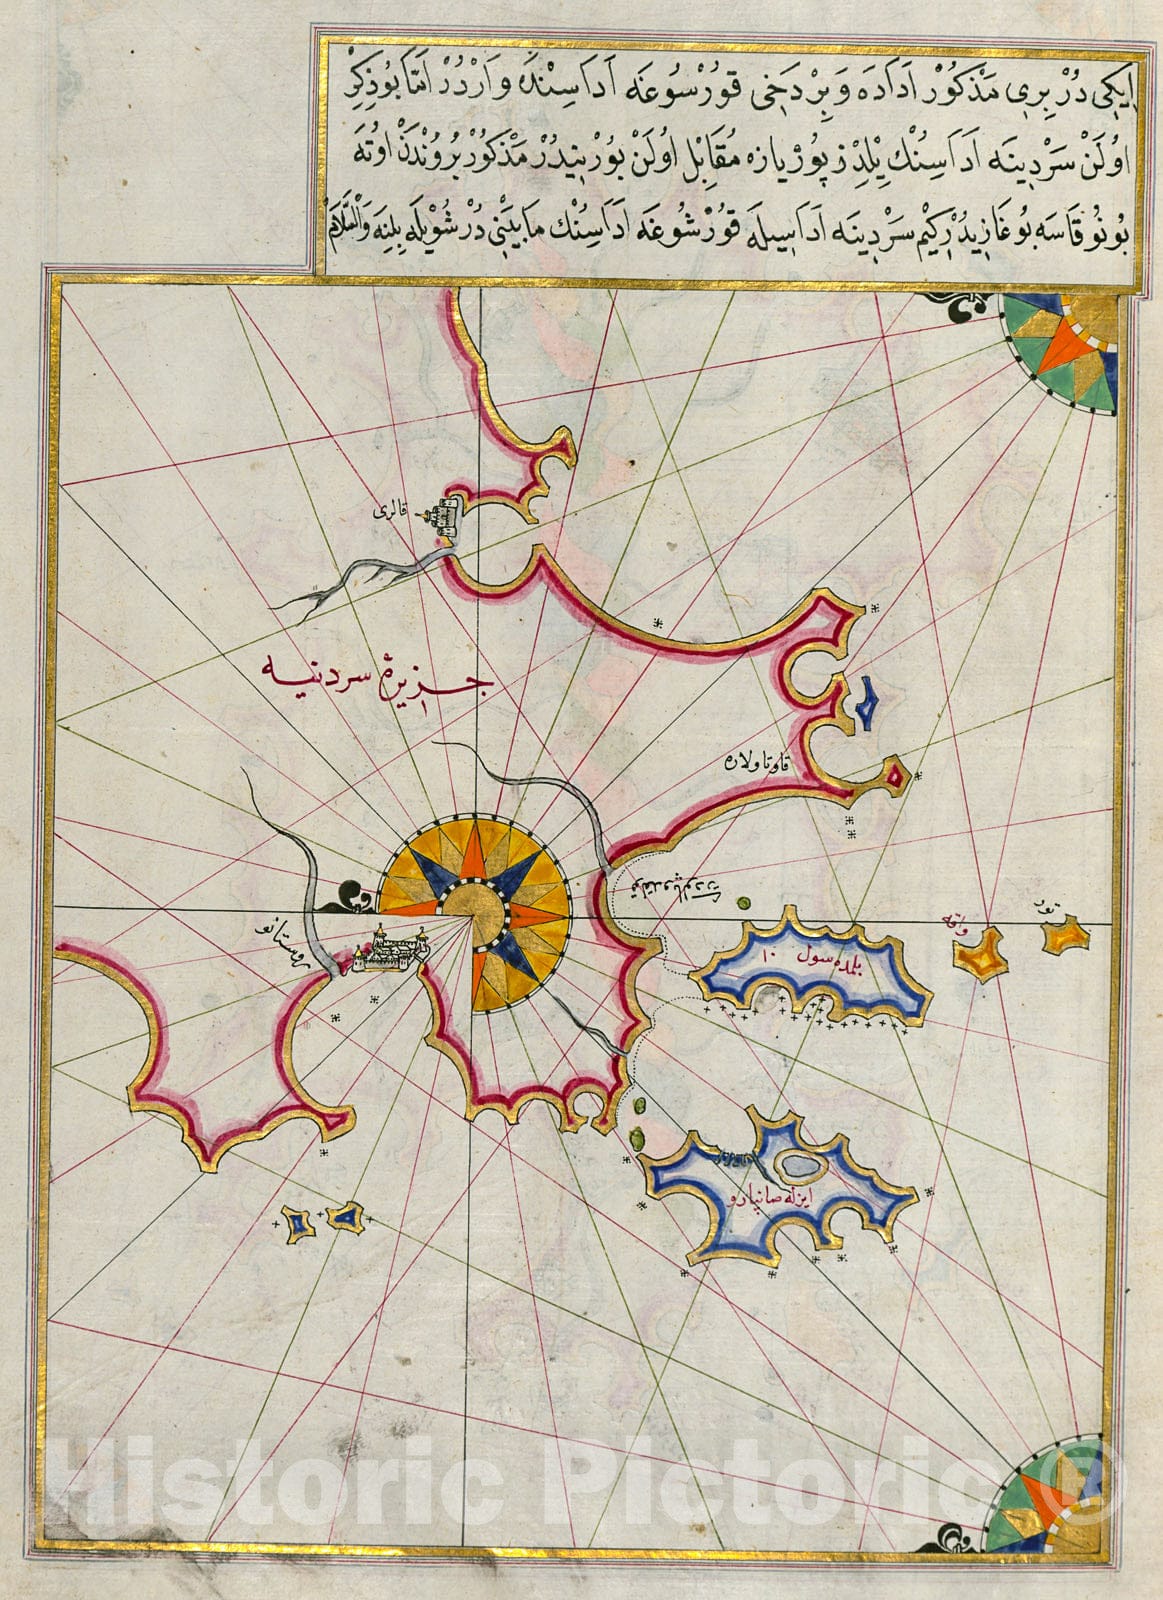 اِیکِی دُرْ بِرِی مَذْکُورْ اَدَادَه وَ بِرْ دَخِی قُورْسُوغَه اَدَاسِنْدَه وَارْدُرْ اَمَّا بُو ذِکِرْ
اوُلَنْ سَرْدِینَه اَدَاسِنُكْ یِلْدِزْ پُوْیَازَه مُقَابِلْ اوُلَنْ بُورْنِیدُرْ مَذْکُورْ بُرُوُنْدَنْ اوُتَه
بُونُوُقَاسَه بُوغَازِیدُرْکِیمْ سَرْدِینَه اَدَاسِیلَه قُورْشُوغَه اَدَاسِنُكْ مَابَیْنِی دُرْ شُویْلَه بِلِنَه وَالسَّلَامْ
قالری
جزیرهٔ سردنیه
قاوتاولاره
تور
واقه
بلمده سول ١٠
روستانو
ایزله صانپارو
Historic Pictoric ®